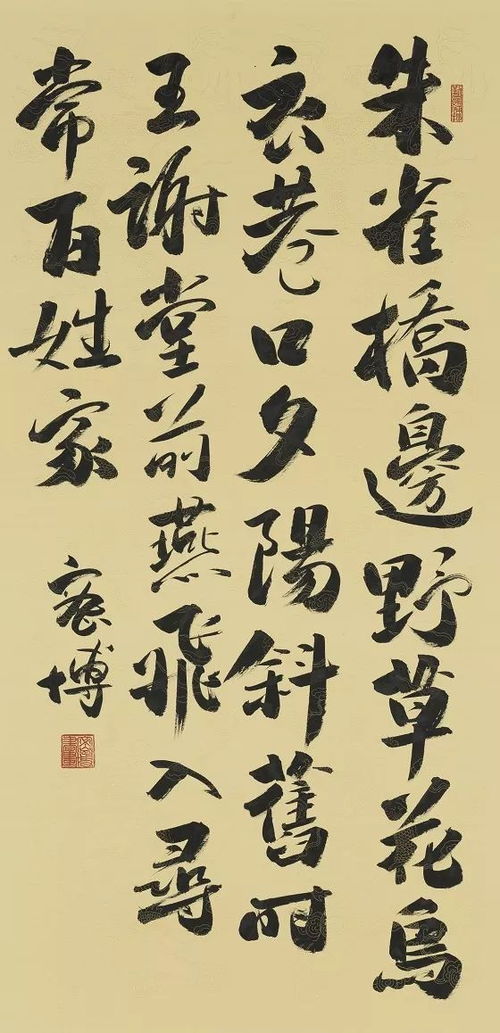 朱雀橋邊野草花烏
衣巷口夕陽斜舊时
王謝堂前燕飛入尋
常百姓家
博